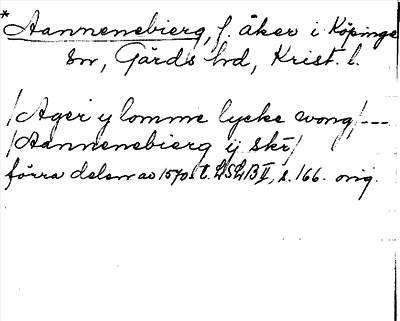 *Aannenebierg, f. åker i Köpinge
sn, Gärds hd, Krist. l.
/Ager y lomme lycke wong/---
/Aannenebierg ij skr/
förra delen av 1570-t. LSLB II, s. 166. orig.